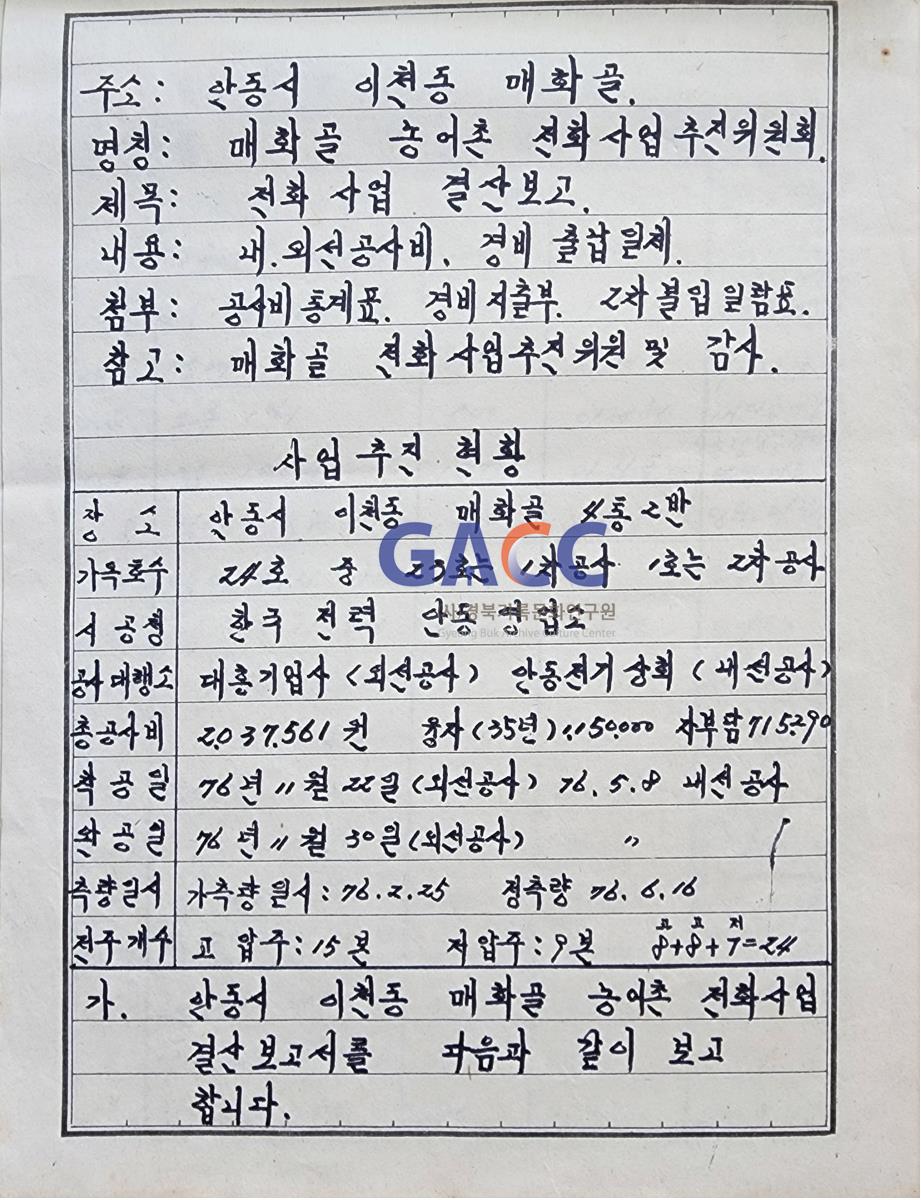 주소: 안동시 이천동 매화골.
명칭: 매화골 농어촌 전화사업추진위원회.
제목: 전화사업 결산보고.
내용: 내.외선공사비. 경비 출납일체.
첨부: 공사비통계표. 경비지출부. 2차불입일람표.
참고: 매화골 전화사업추진위원 및 감사.
사업추진현황
장소 안동시 이천동 매화골 4통2반
가옥호수 24호 중 23호는 1차공사 1호는 2차공사
시공청 한국전력 안동영업소
공사대행소 대흥기업사(외선공사) 안동전기상회(내선공사)
총공사비 2.037.561원 융자(35년)1.150.000 자부담715290
착공일 76년 11월 22일(외선공사) 76.5.8 내선공사
완공일 76년 11월 30일(외선공사) 〃
측량일시 가측량일시: 76.2.25 정측량 76.6.16
전주개수 고압주: 15본 저압주: 9본 고8+고8+저7=24
가. 안동시 이천동 매화골 농어촌 전화사업
결산보고서를 다음과 같이 보고
합니다.
GACC
(사)경북기록문화연구원
Gyeong Buk Archive Culture Center